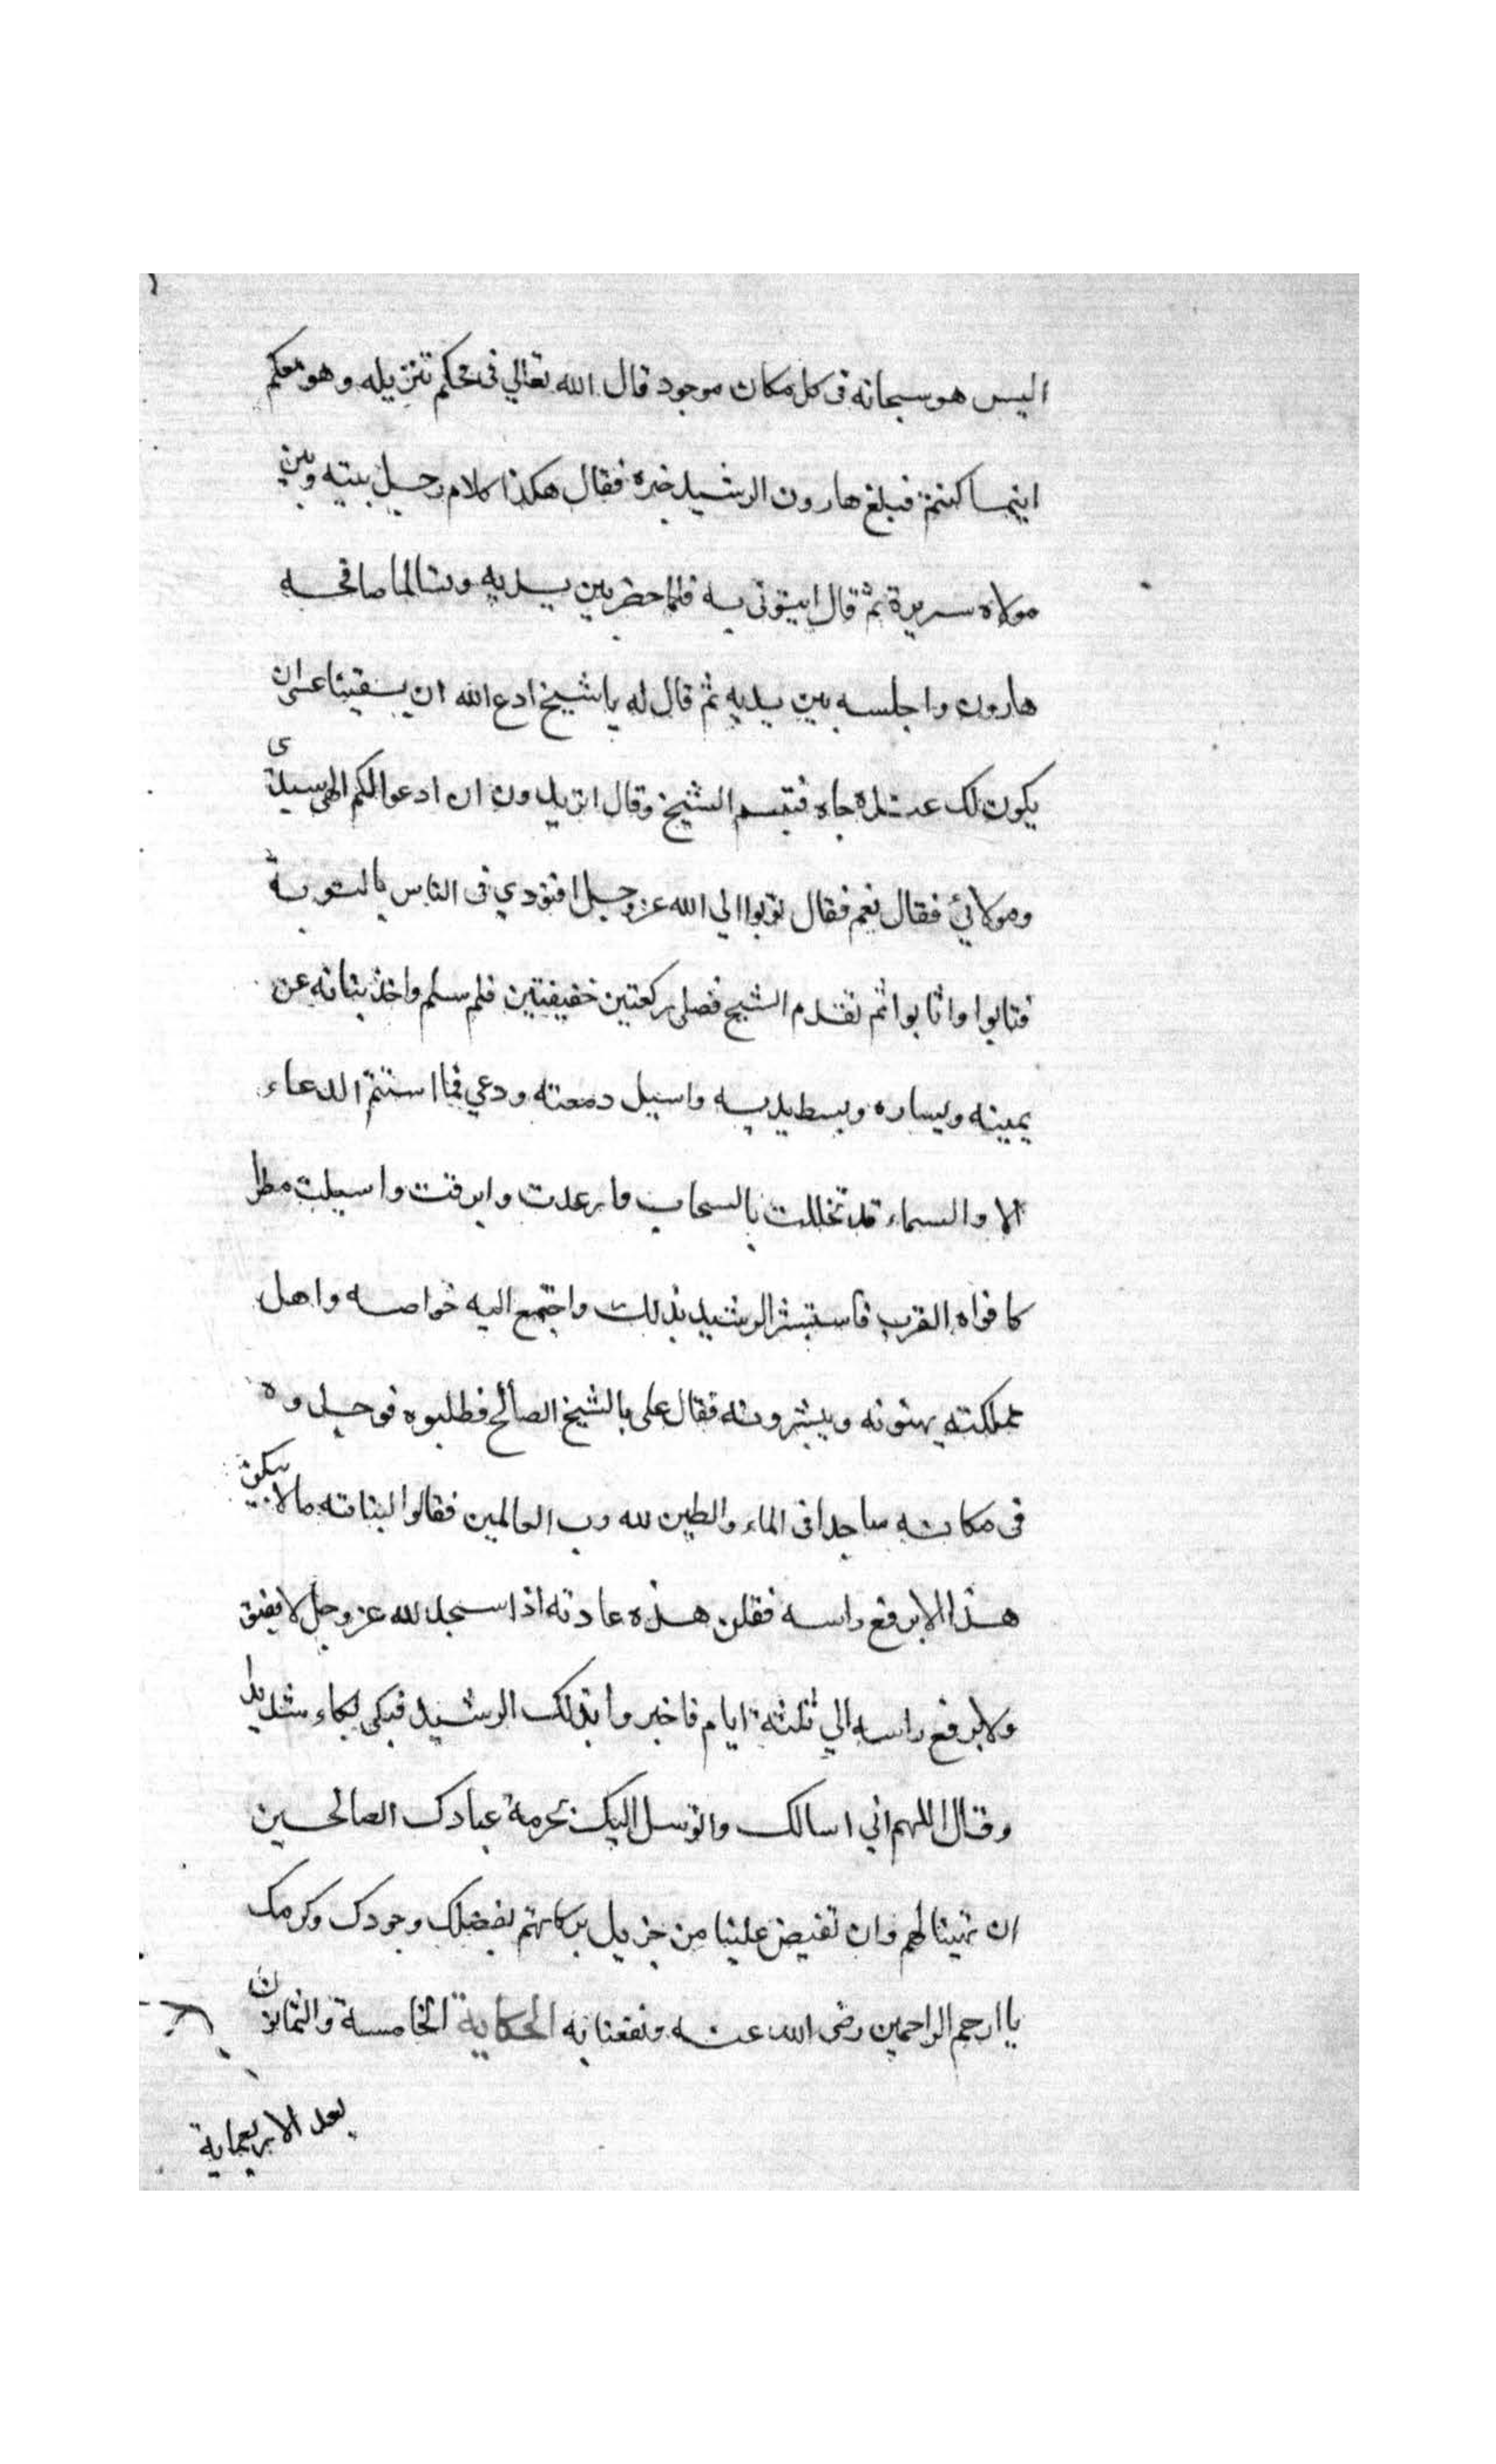 اليس هو سبحانه فى كل مكان موجود قال الله تعالي فى محكم تنزيله وهو معكم
اينما كنتم فبلغ هارون الرشيد خبره فقال هكذا كلام رجل بينه وبين
مولاه سريرة ثم قال ايتونى به فلما حضر بين يديه وتسالما صافحه
هارون واجلسه بين يديه ثم قال له ياشيخ ادع الله ان يسقينا عسى ان
يكون لك عنده جاه فتبسم الشيخ وقال اتريدون ان ادعوا لكم الهى سيدى
ومولائي فقال نعم فقال توبوا الي الله عز وجل فنودي فى الناس بالتوبة
فتابوا وانابوا ثم تقدم الشيخ فصلى ركعتين خفيفتين فلم سلم واخذ بناته عن
يمينه ويساره وبسط يديه واسبل دمعته ودعي فما استتم الدعاء
الا والسماء قد تخللت بالسحاب وارعدت وابرقت واسبلت مطرا
كافواه القرب فاستبشر الرشيد بذلك واجتمع اليه خواصه واهل
مملكته يهنونه ويبشرونه فقال على بالشيخ الصالح فطلبوه فوجدوه
فى مكانه ساجدا فى الماء والطين لله رب العالمين فقالوا لبناته ما لابيكن
هذا لا يرفع راسه فقلن هذه عادته اذا سجد لله عز وجل لا يفيق
ولا يرفع راسه الي ثلثة ايام فاخبروا بذلك الرشيد فبكى بكاء شديدا
وقال اللهم اني اسالك واتوسل اليك بحرمة عبادك الصالحين
ان تهبنا لهم وان تفيض علينا من جزيل بركاتهم بفضلك وجودك وكرمك
يا ارحم الراحمين رضى الله عنه ونفعنا به الحكاية الخامسة والثمانون
بعد الاربعماية